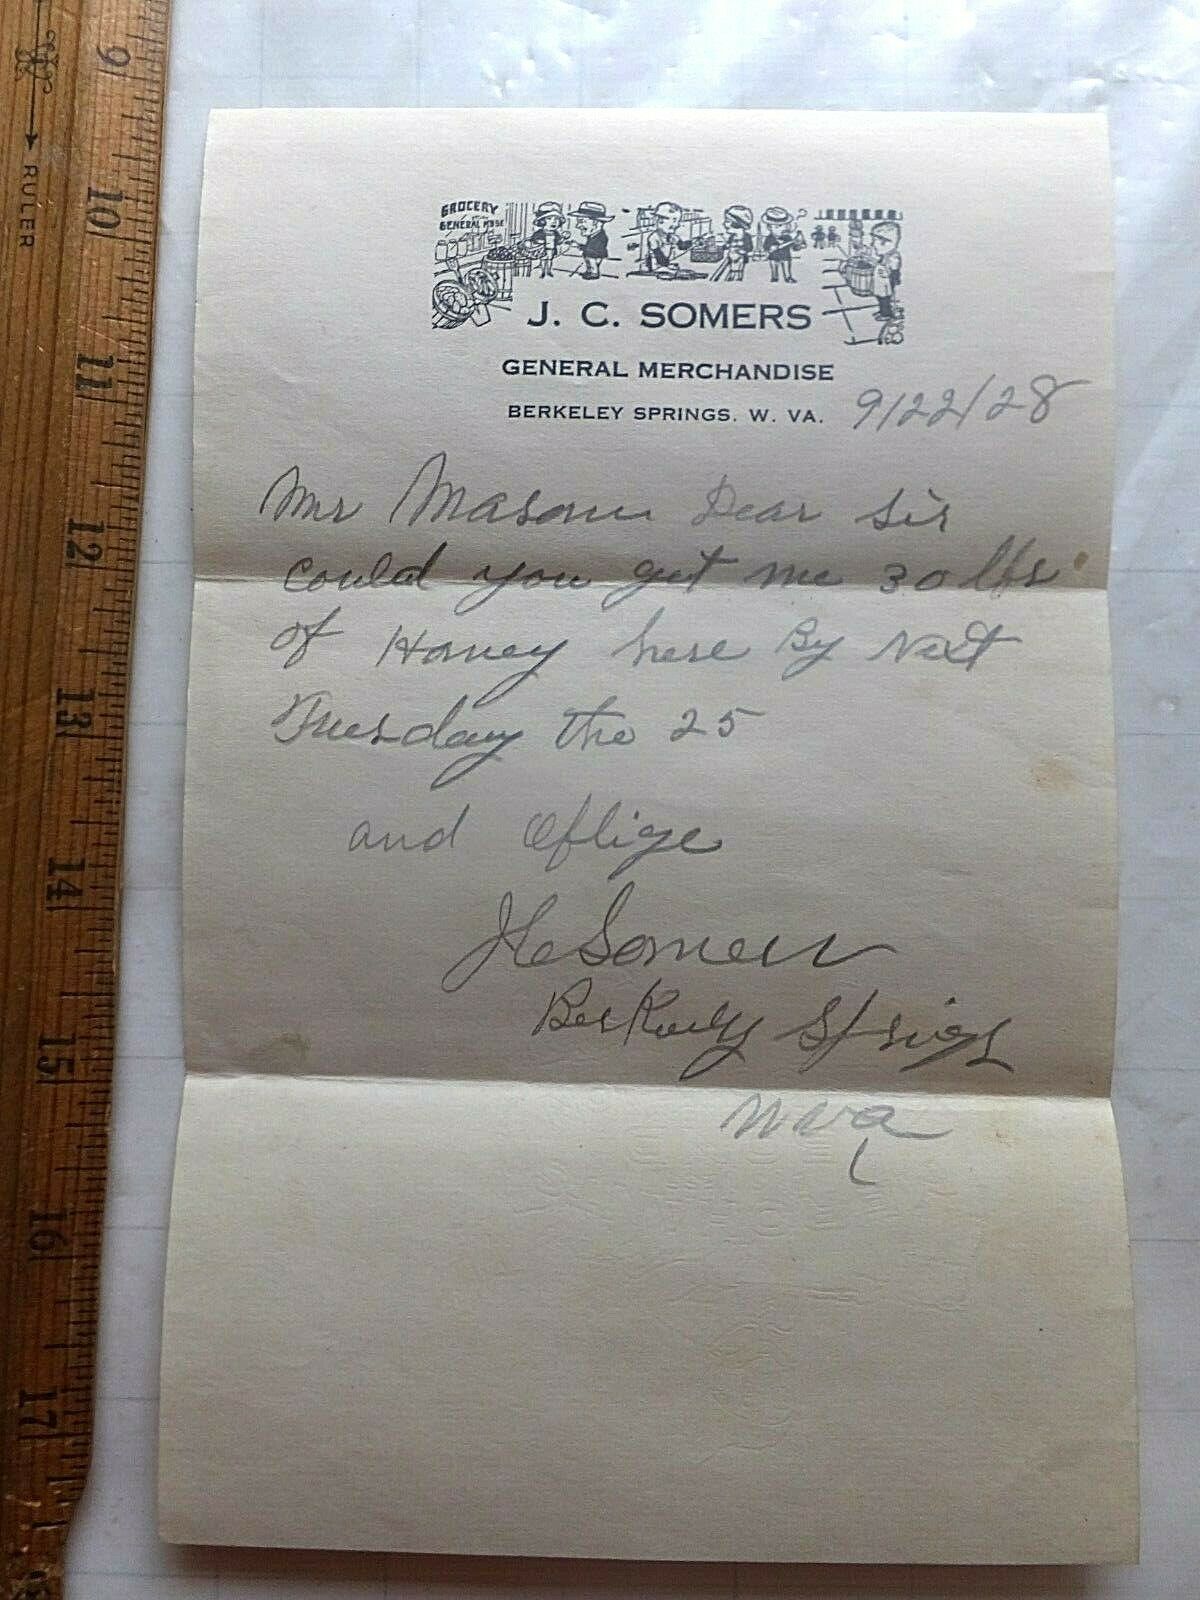 GROCERY
GENERAL MDSE
J. C. SOMERS
GENERAL MERCHANDISE
BERKELEY SPRINGS. W. VA. 9/22/28
Mr Mason Dear Sir
could you get me 30 lbs
of Honey here By Next
Tuesday the 25
and Oblige
JC Somers
Berkeley Springs
W Va
RULER
9
10
11
12
13
14
15
16
17